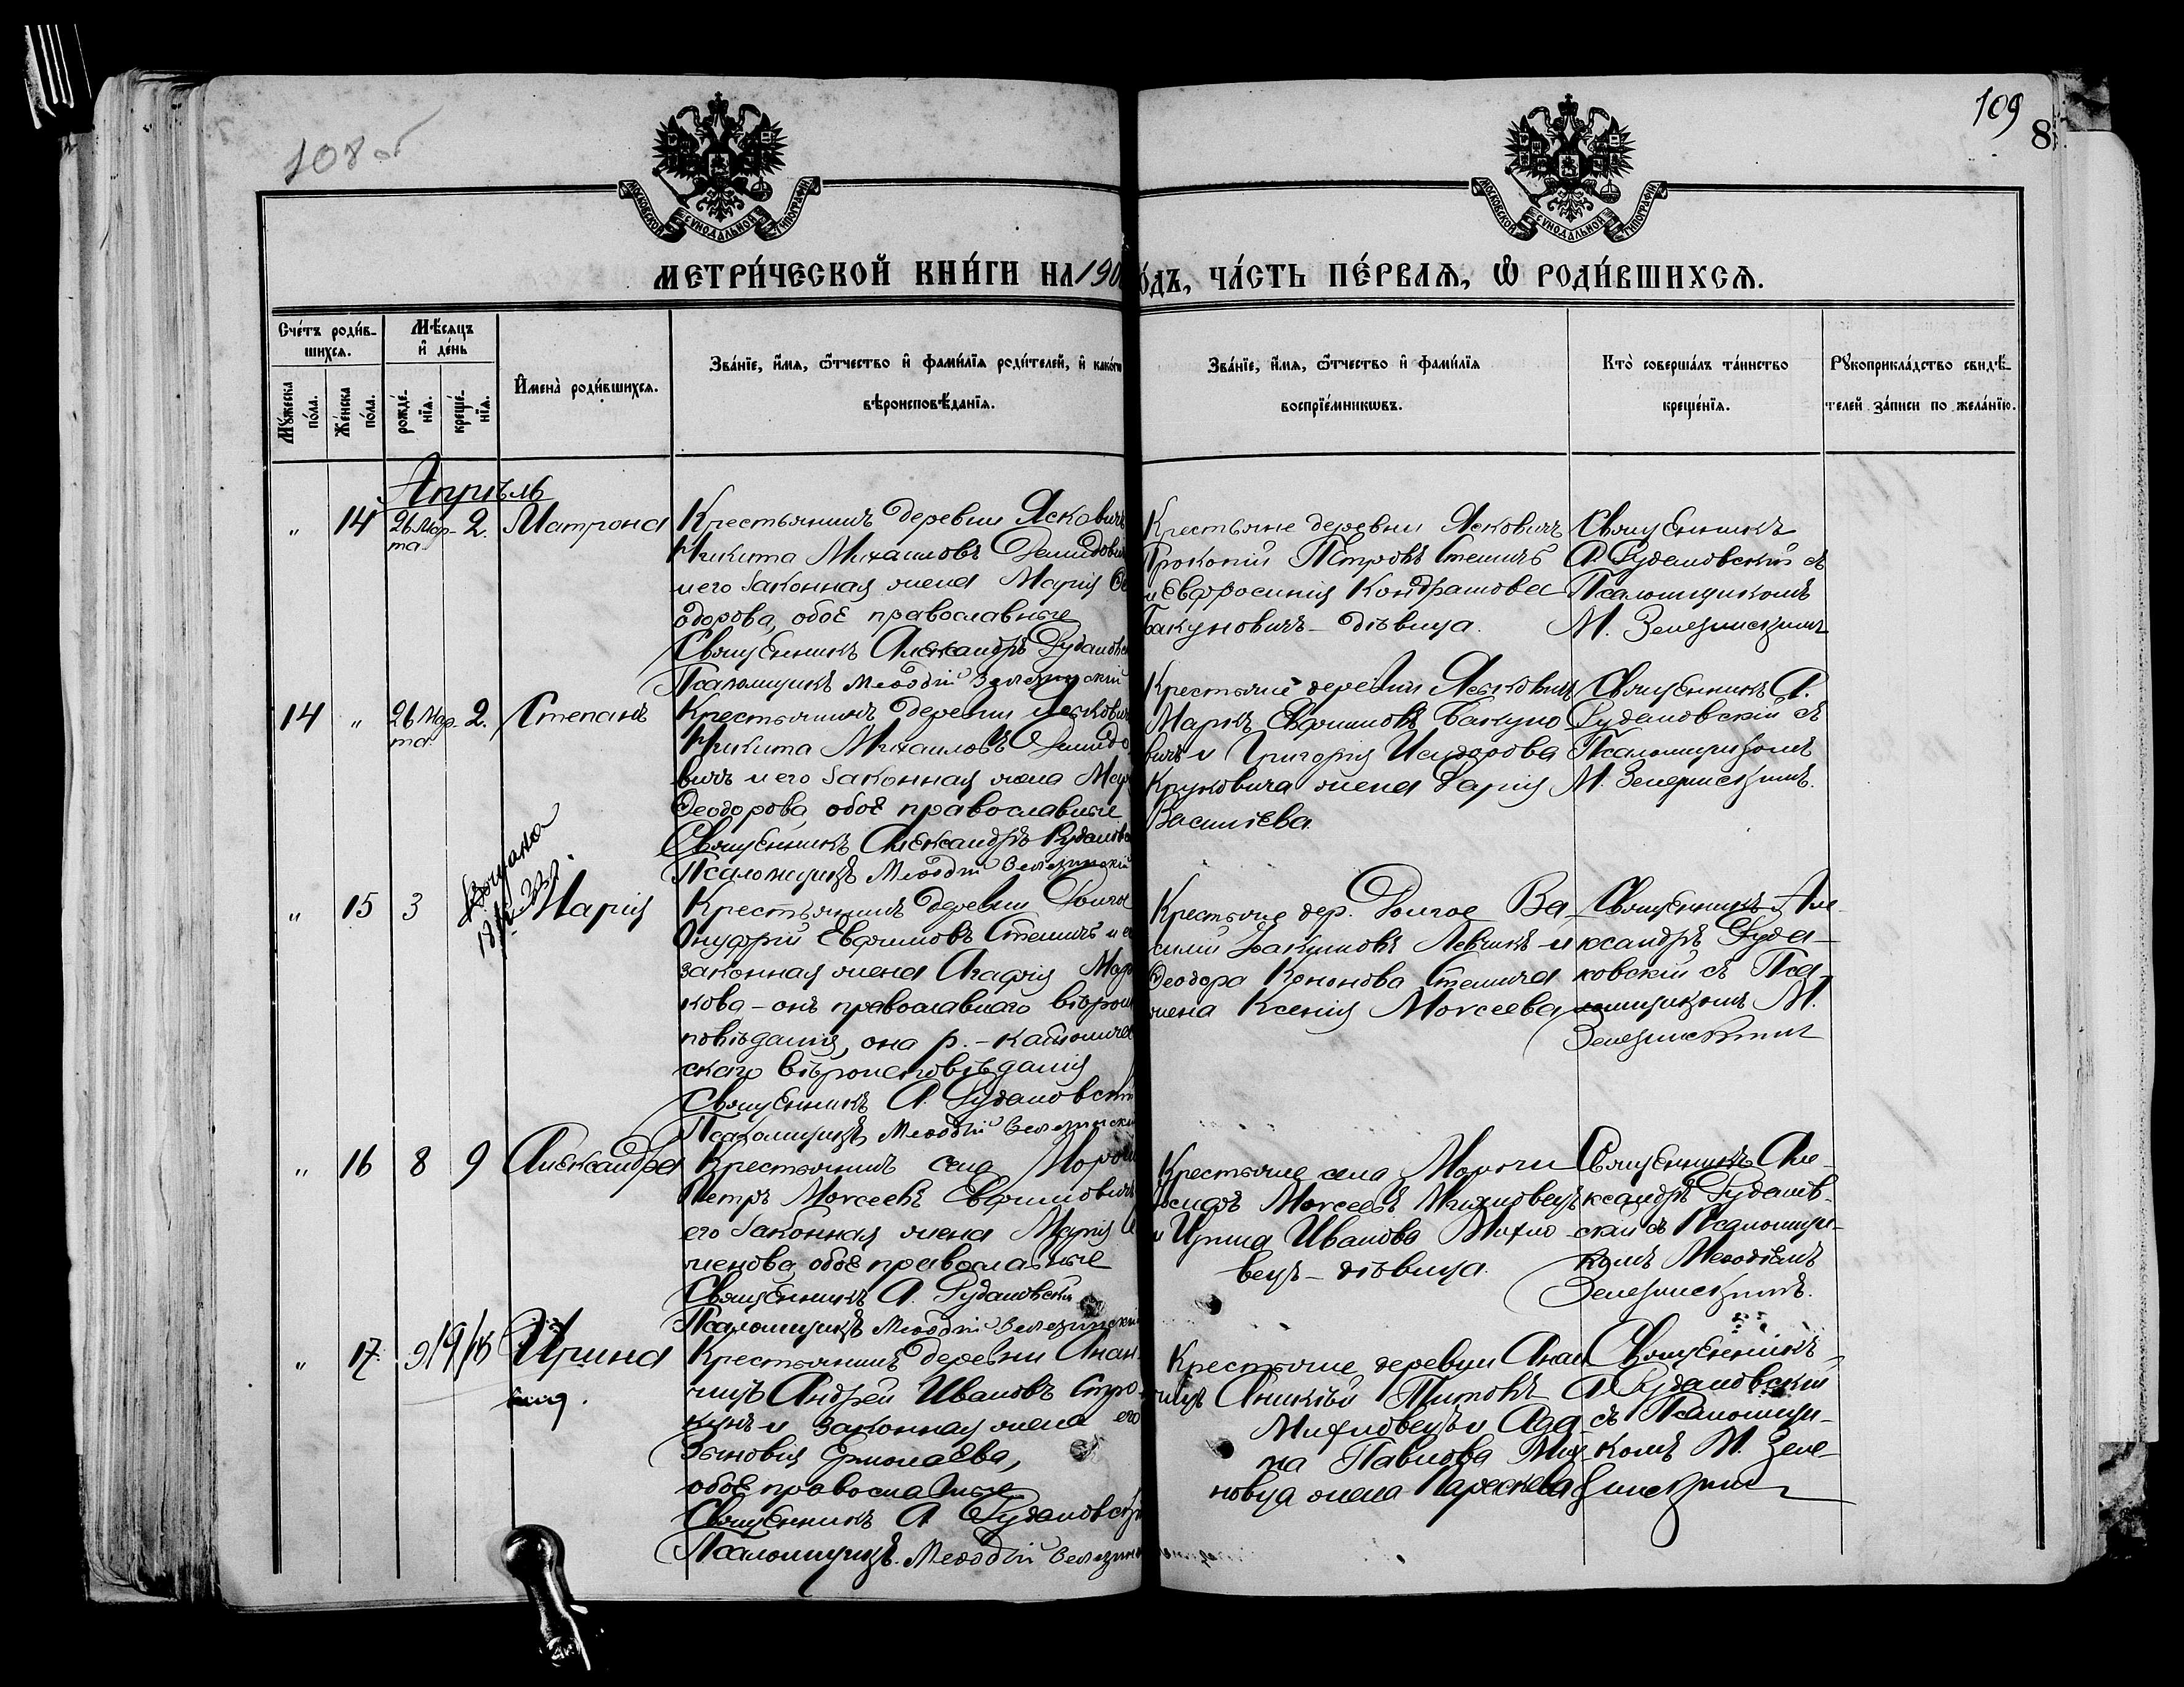 108 об
109
8
МОСКОВСКОЙ СУНОДАЛЬНОЙ ТИПОГРАФІИ
МОСКОВСКОЙ СУНОДАЛЬНОЙ ТИПОГРАФІИ
МЕТРИ́ЧЕСКОЙ КНИ́ГИ НА 190
о́дъ, ЧА́СТЬ ПЕ́РВАѦ, Ѿ РОДИ́ВШИХСѦ.
Сче́тъ роди́в-
шихсѧ.
Мѣ́сѧцъ
и҆ де́нь
Мꙋ́жеска
по́ла.
Же́нска
по́ла.
рожде́-
нїѧ.
креще́-
нїѧ.
И҆мена̀ роди́вшихсѧ.
Зва́нїе, и҆́мѧ, ѻ҆́тчество и҆ фами́лїѧ роди́телей, и҆ како́гѡ
вѣроисповѣ́данїѧ.
Зва́нїе, и҆́мѧ, ѻ҆́тчество и҆ фами́лїѧ
воспрїе́мникѡвъ.
Кто̀ соверша́лъ та́инство
креще́нїѧ.
Рꙋкоприкла́дство свидѣ́-
телей за́писи по жела́нїю.
Апрѣль
" 14 26 Мар- 2. Матрона
та
Крестьянинъ деревни Ясковичъ
Никита Михаиловъ Демидович
и его законная жена Марія Ѳе
одорова, обое православные
Священникъ Александръ Рудаковск
Псаломщикъ Меѳодій
Крестьяне деревни Ясковичъ
Прокопій Петровъ Стешицъ
и Евфросинія Кондратова
Бакуновичъ - дѣвица.
Священникъ
А. Рудаковскій съ
Псаломщикомъ
М.
14 " 26 Мар- 2. Степанъ
та
Крестьянинъ деревни Яскович
Никита Михаиловъ Демидо
вичъ и его законная жена Мар
Ѳеодорова, обое православные
Священникъ Александръ Рудаковс
Псаломщикъ Меѳодій
Крестьяне деревни Ясковичъ
Маркъ Евфимовъ Бакуно
вичъ и Григорія Исидорова
Круковича жена Дарія
Василіева
Священникъ А.
Рудаковскій съ
Псаломщикомъ
М.
" 15 3 Марія
Крестьянинъ деревни Долгое
Онуфрій Евфимовъ Стешицъ и е
законная жена Агафія Мар
кова - онъ православнаго вѣроис
повѣданія, она р.-католиче
скаго вѣроисповѣданія
Священникъ А. Рудаковскій
Псаломщикъ Меѳодій
Крестьяне дер. Долгое Ва
силій Левчикъ и
Ѳеодора Кононова Стешица
жена Ксенія Моисеева
Священникъ Але-
ксандръ Руда-
ковскій съ Пса-
ломщикомъ М.
" 16 8 9 Александра
Крестьянинъ села Мороч
Петръ Моисеевъ Евфимовичъ
его законная жена Марія
менова, обое православные
Священникъ А. Рудаковскій
Псаломщикъ Меѳодій
Крестьяне села Морочи
Іосифъ Моисеевъ Михновецъ
и Ирина Иванова Михно
вецъ - дѣвица.
Священникъ Але-
ксандръ Рудаков-
скій съ Псаломщи-
комъ Меѳодіемъ
" 17 Ирина
Крестьянинъ деревни Анан-
чицъ Андрей Ивановъ
и законная жена его
Зиновія Ермолаева,
обое православные
Священникъ А. Рудаковскій
Псаломщикъ Меѳодій
Крестьяне деревни Анан
чицъ Аникій Титовъ
Михновецъ и Ада
ма Павлова Мих-
новца жена Параскева
Священникъ
А. Рудаковскій
съ Псаломщи-
комъ М.